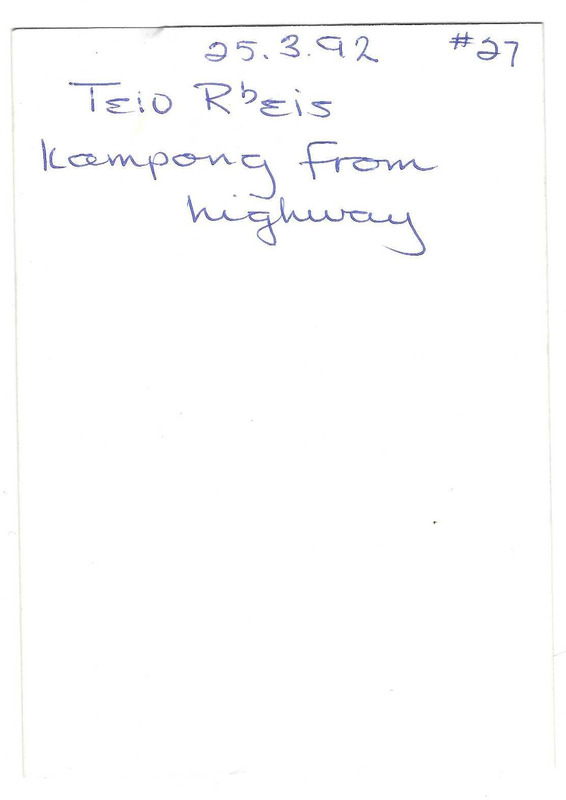 25.3.92 #27
Teio Rᵇeis
Kampong from
highway